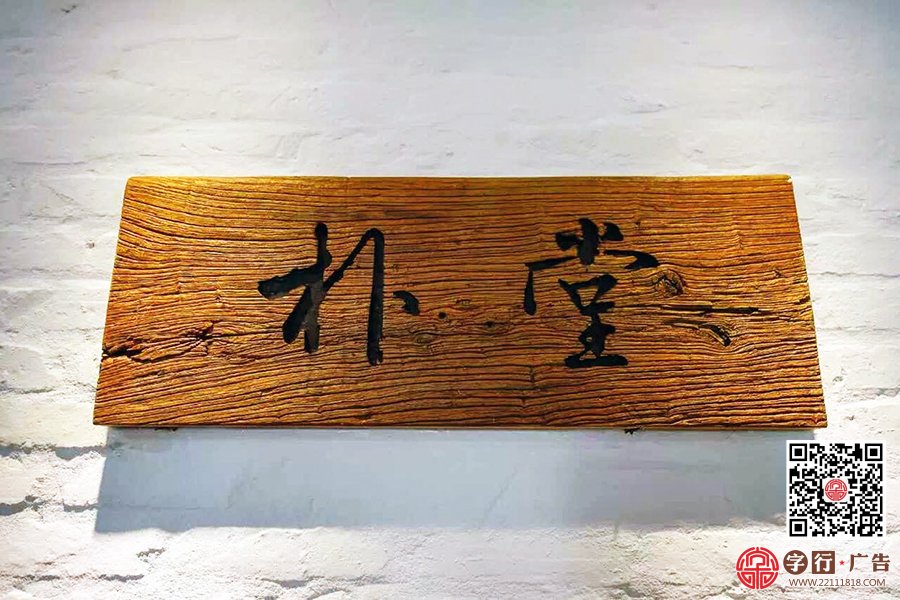 朴堂
字行★广告
WWW.22111818.COM